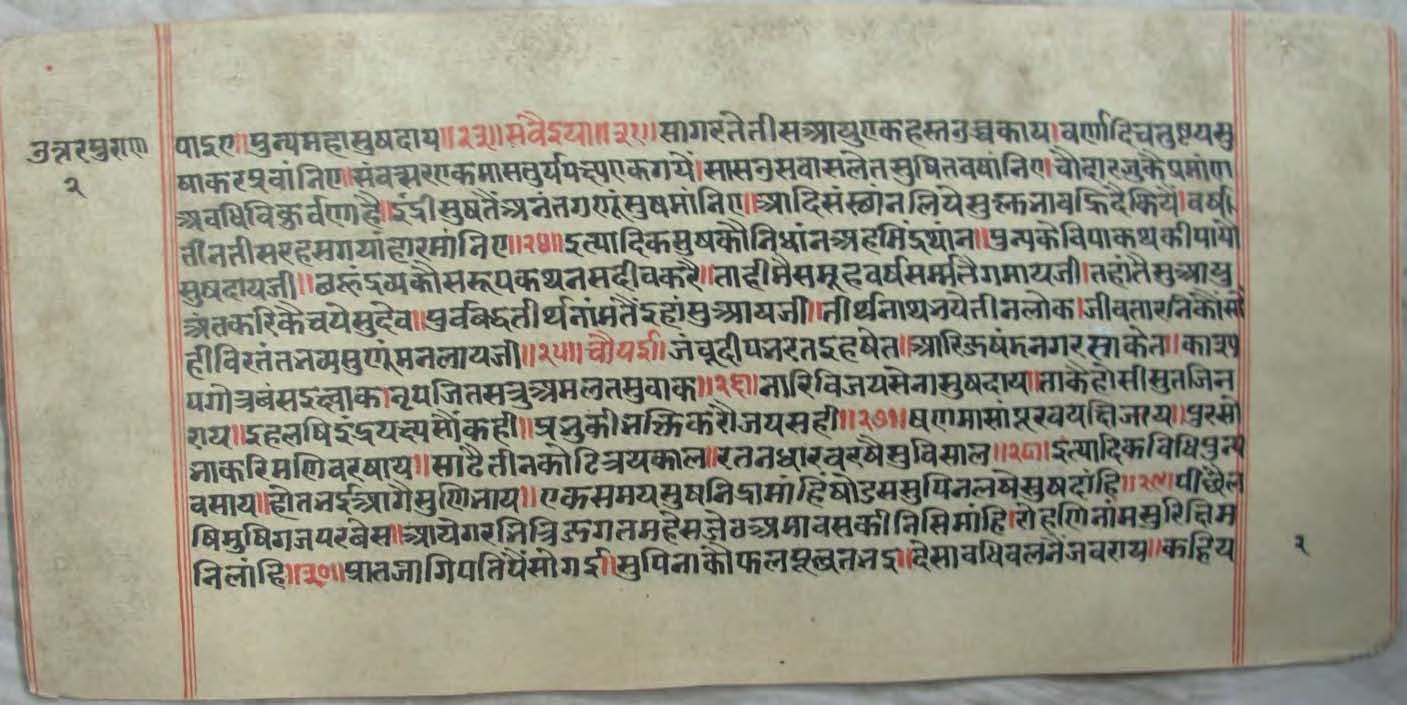 उत्तरपुराण
२
पाइए॥पुन्यमहासुषदाय॥२३॥सवैइया॥३१॥सागरतेतीसआयुएकहस्तउच्चकाय।वर्णादिचतुष्टयसु
षाकर प्रवांनिए॥संवत्सरएकमासतुर्यपक्ष्यएकगयें।मासउसवासलेतसुषितवषांनिए।चौदारजुकैप्रमांण
अवधिविकुर्वणाहै।इंद्रीसुषतैंअनंतगणूंसुषमांनिए॥आदिसंस्छांनलियेसुक्ल
तीनतीसरहसगयांहारमांनिए॥२४॥इत्यादिकसुषकौनिधांनअहमिंद्रथांन॥पुन्यकेविपाकथकीपायो
सुषदायजी॥ कौसरूपकथनसदीवकरै॥ताहीमैसमूहवर्षसर्म्मतैगमायजी।तहांतैसुआयु
अंतकरिकैचयेसुदेव॥पूर्ववद्धतीर्थनांमतैंइहांसुआयजी॥तीर्थनाथभयेतीनलोक।जीवतारनिकौंसो
हीविरतंतभव्यसुणूंमनलायजी॥२५॥चौपई॥जंबूदीपभरतइहषेत॥आरिजषंडनगरसाकेत॥काश्य
पगोत्रवंसइक्ष्वाक।नृपजितसत्रुअमलतसुवाक॥२६॥नारिविजयसेनासुषदाय॥ताकैहोसीसुतजिन
राय॥इहलषिइंद्रयक्ष्यसौंकही॥प्रभुकीभक्तिकरौजयसही॥२७॥षणमासांपूरवयक्षिजाय॥पुरसो
भाकरिमणिवरषाय॥साढैतीनकोटित्रयकाल॥रतनधारवरषैसुविसाल॥२८॥इत्यादिकविधिपुन्य
वसाय॥होतभईआगैसुणिभाय॥एकसमयसुषनिद्रामांहिषोडससुपिनलषेसुषदांहि॥२९॥पीछैल
षिमुषिगजपरवेस॥आयेगरभित्रिजगतमहेसजेठअमावसकीनिसिमांहि।रोहणिनांमसुरिक्षिम
निलांहि॥३०॥प्रातजागिपतिपैंसोगई।सुपिनाकौफलपूछतभई॥देसावधिवलतैंजवराय॥कहिय
२